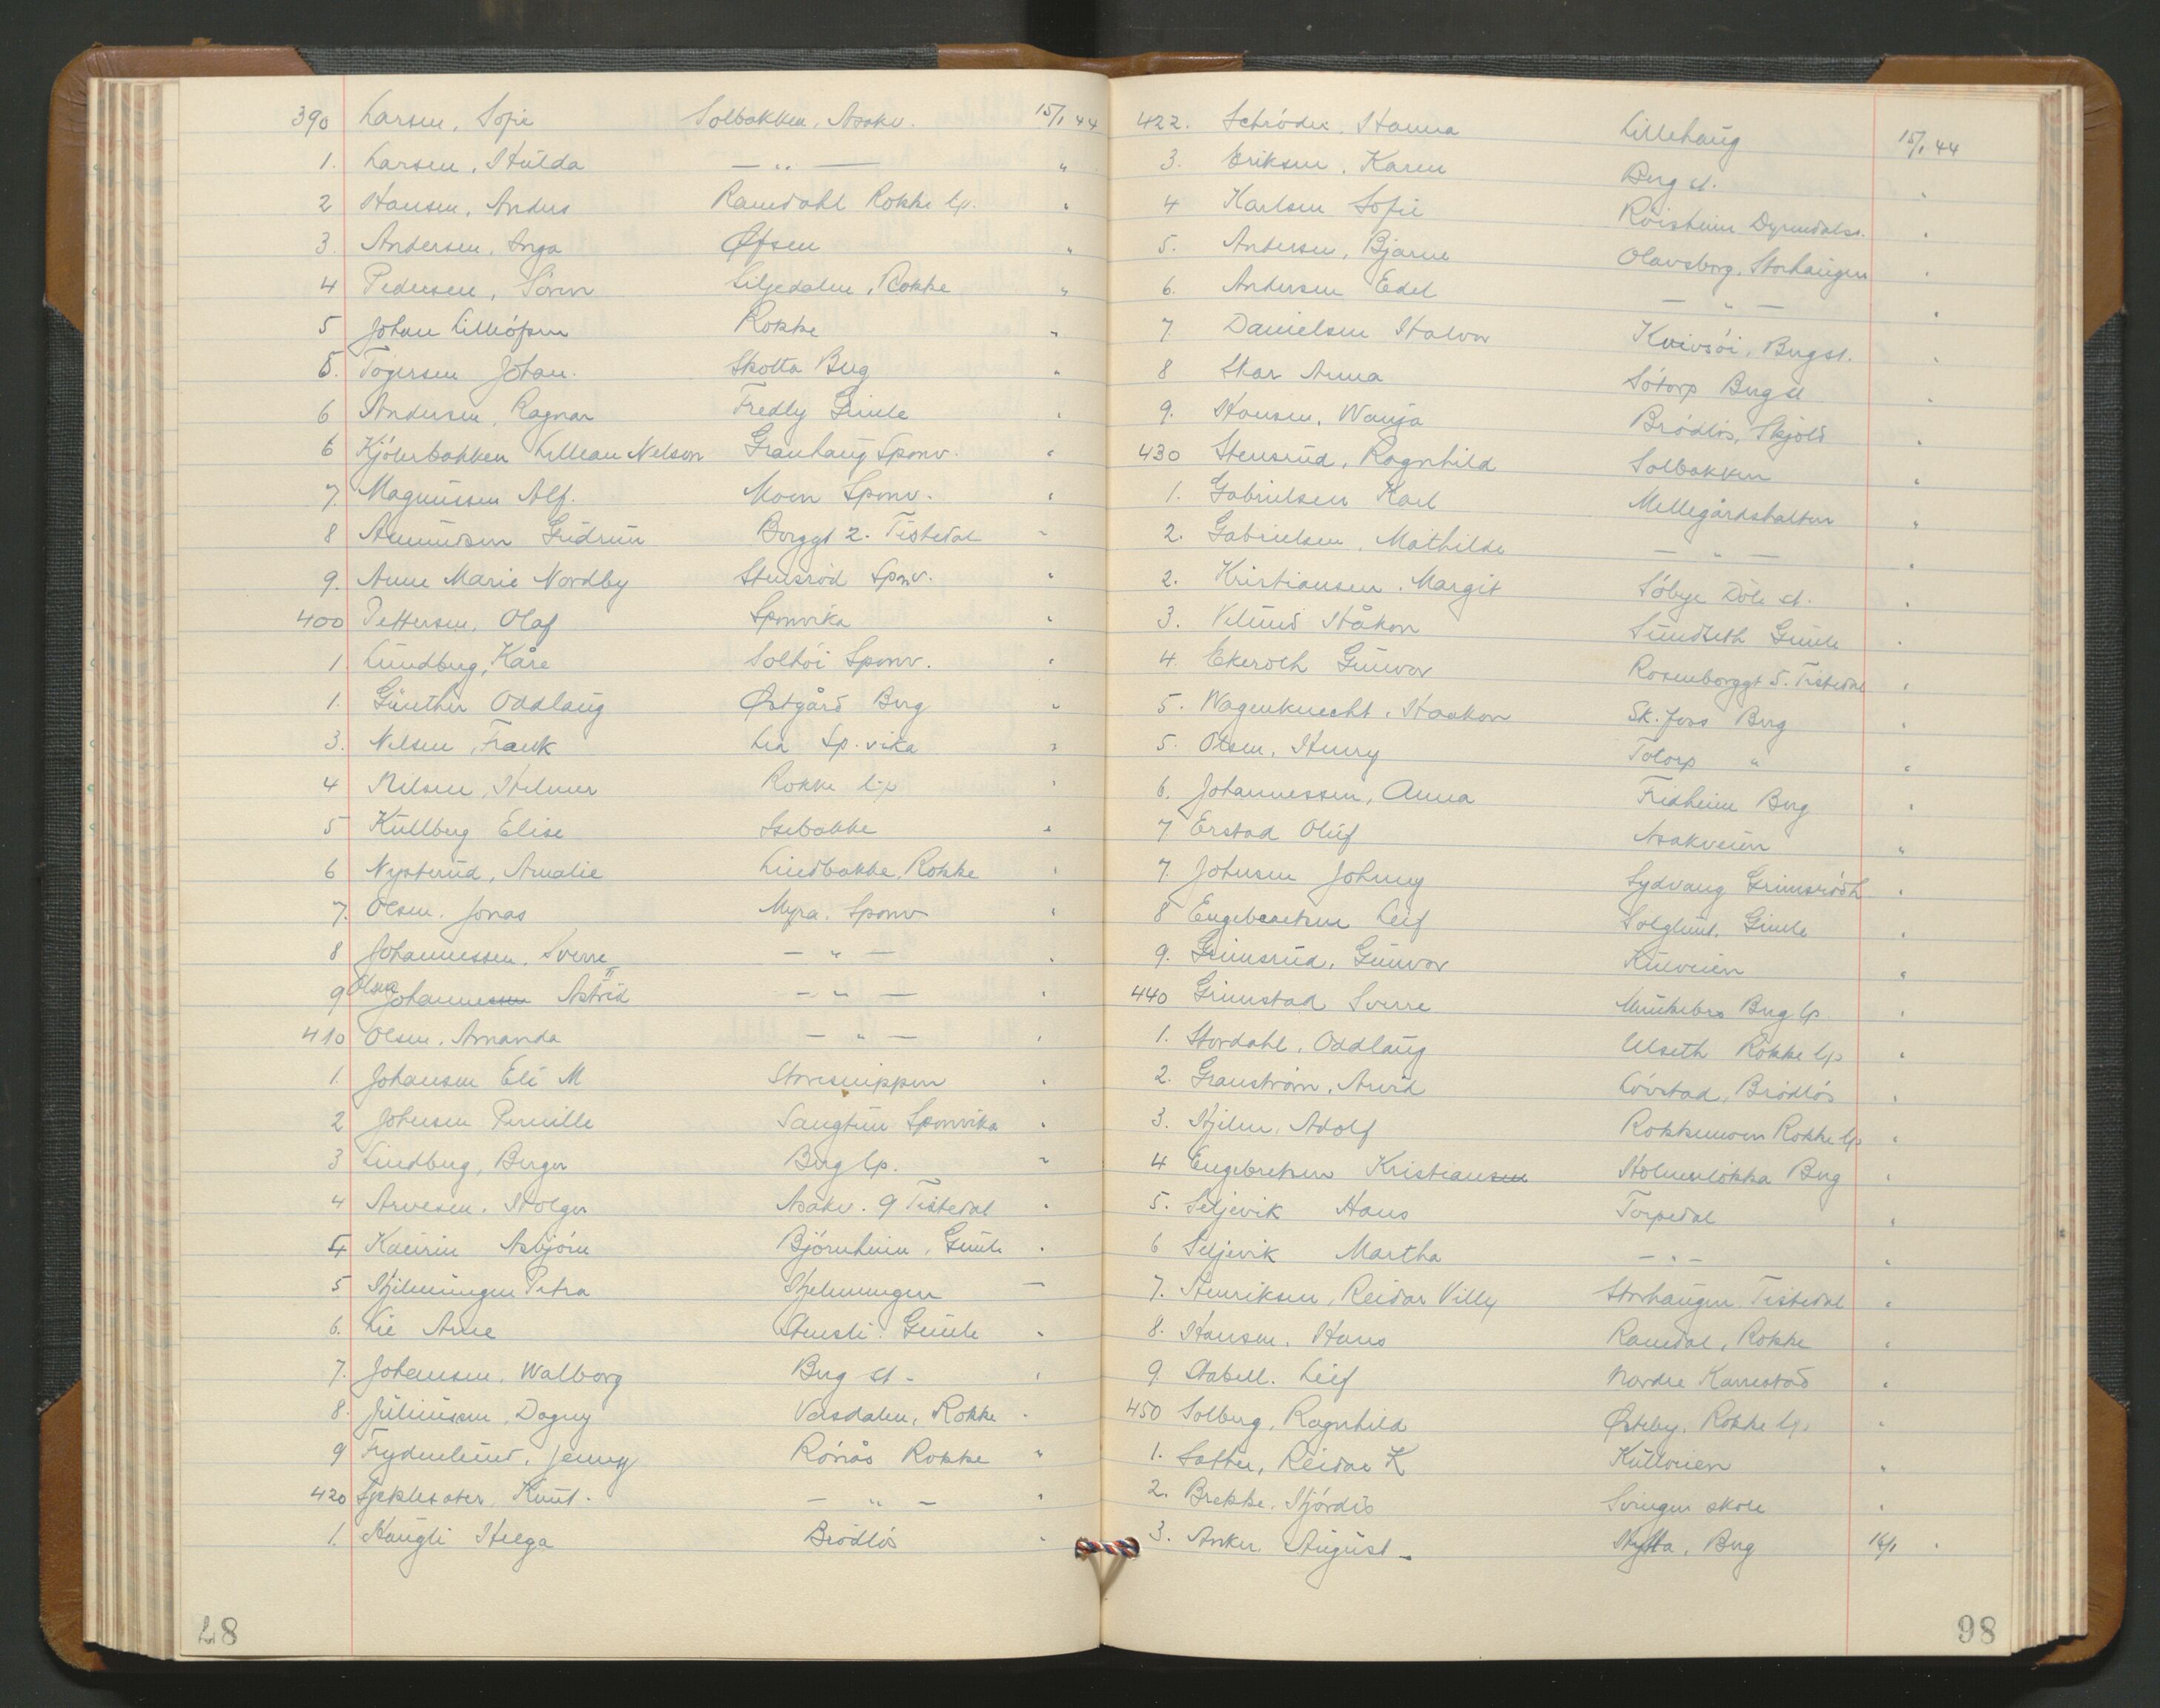 390 Larsen, Sofie Solbakken, Asakv. 15/1 44
1. Larsen, Hulda — „ — „
2 Hansen, Anders Ramdahl Rokke lp. „
3. Andersen, Inga Øfsen „
4 Pedersen, Sören Liljedalen, Rokke „
5 Johan Lilleöfsen Rokke „
5. Togersen Johan. Skotta Berg „
6 Andersen, Ragnar Fredly Gimle „
6 Kjölerbakken Lillean Nelson Granhaug Sponv. „
7. Magnussen Alf. Moen Sponv. „
8 Amundsen Gudrun Borggt 2. Tistedal „
9. Anne Marie Nordby Stensröd Sponv. „
400 Pettersen, Olaf Sponvika „
1 Lundberg, Kåre Solhöi Sponv. „
1. Günther Oddlaug Østgård Berg „
3. Nilsen, Frank Lia Sp.vika „
4 Nilsen, Hilmer Rokke lp „
5 Kullberg Elise Isebakke „
6 Nysterud, Amalie Lundbakke, Rokke „
7. Olsen. Jonas Myra. Sponv „
8 Johannessen. Sverre — „ — „
9 Olsen Johannesen Astrid — „ — „
410 Olsen. Amanda — „ — „
1. Johansen Eli M Storesnippen „
2 Johnsen Pernille Sangtun Sponvika „
3 Lindberg, Berger Berg lp. „
4 Arvesen. Holger Asakv. 9 Tistedal „
4 Kaurin Asbjörn Björnheim, Gimle „
5 Hjelmungen Petra Hjelmungen —
6. Lie Arne Stensli. Gimle „
7. Johansen. Walborg Berg st. „
8. Juliussen, Dagny Vasdalen, Rokke „
9 Frydenlund, Jenny Rönås Rokke „
420 Sjeklesæter, Knut. — „ — „
1. Haugli Helga Brödlös „
48
422. Schröder, Hanna Lillehaug 15/1 44
3. Eriksen, Karen Berg st. „
4 Karlsen Sofie Röisheim Dyrendalsv. „
5. Andersen, Bjarne Olavsborg, Storhaugen „
6. Andersen Edel — „ — „
7. Danielsen Halvor Kvivsöi, Berg st. „
8 Skar Anna Sötorp Berg st „
9. Hansen, Wanja Brödlös, Skjold „
430 Stensrud, Ragnhild Solbakken „
1. Gabrielsen Karl Mellegårdshalten „
2. Gabrielsen, Mathilde — „ — „
2. Kristiansen. Margit Söbye Döle st. „
3. Velund Håkon Sundseth Gimle „
4. Ekeroth Gunvor Rosenborggt 5. Tistedal „
5. Wagenknecht. Haakon Sk.foss Berg „
5. Olsen, Henry Tolorp „ „
6. Johannessen, Anna Fridheim Berg „
7 Erstad Oluf Asakveien „
7. Johnsen Johnny Sydvang Grimsrödh „
8 Engebretsen Leif Solglimt. Gimle „
9. Grimsrud, Gunvor „
440 Grimstad Sverre Munkebro Berg lp. „
1. Stordahl, Oddlaug Ulseth Rokke lp „
2. Granström. Arvid Lövstad, Brödlös „
3. Hjelm. Adolf Rokkemoen Rokke lp „
4 Engebretsen Kristiansen Holmenlökka Berg „
5. Seljevik Hans Torpedal „
6 Seljevik Martha — „ — „
7. Henriksen, Reidar Villy Storhaugen Tistedal „
8. Hansen. Hans Ramdal, Rokke „
9. Stabell. Leif Nordre Karrestad „
450 Solberg, Ragnhild Østeby, Rokke lp. „
1. Sætter, Reidar K „
2. Brekke, Hjördis Svingen skole „
3. Anker August Hytta, Berg 16/1 „
98